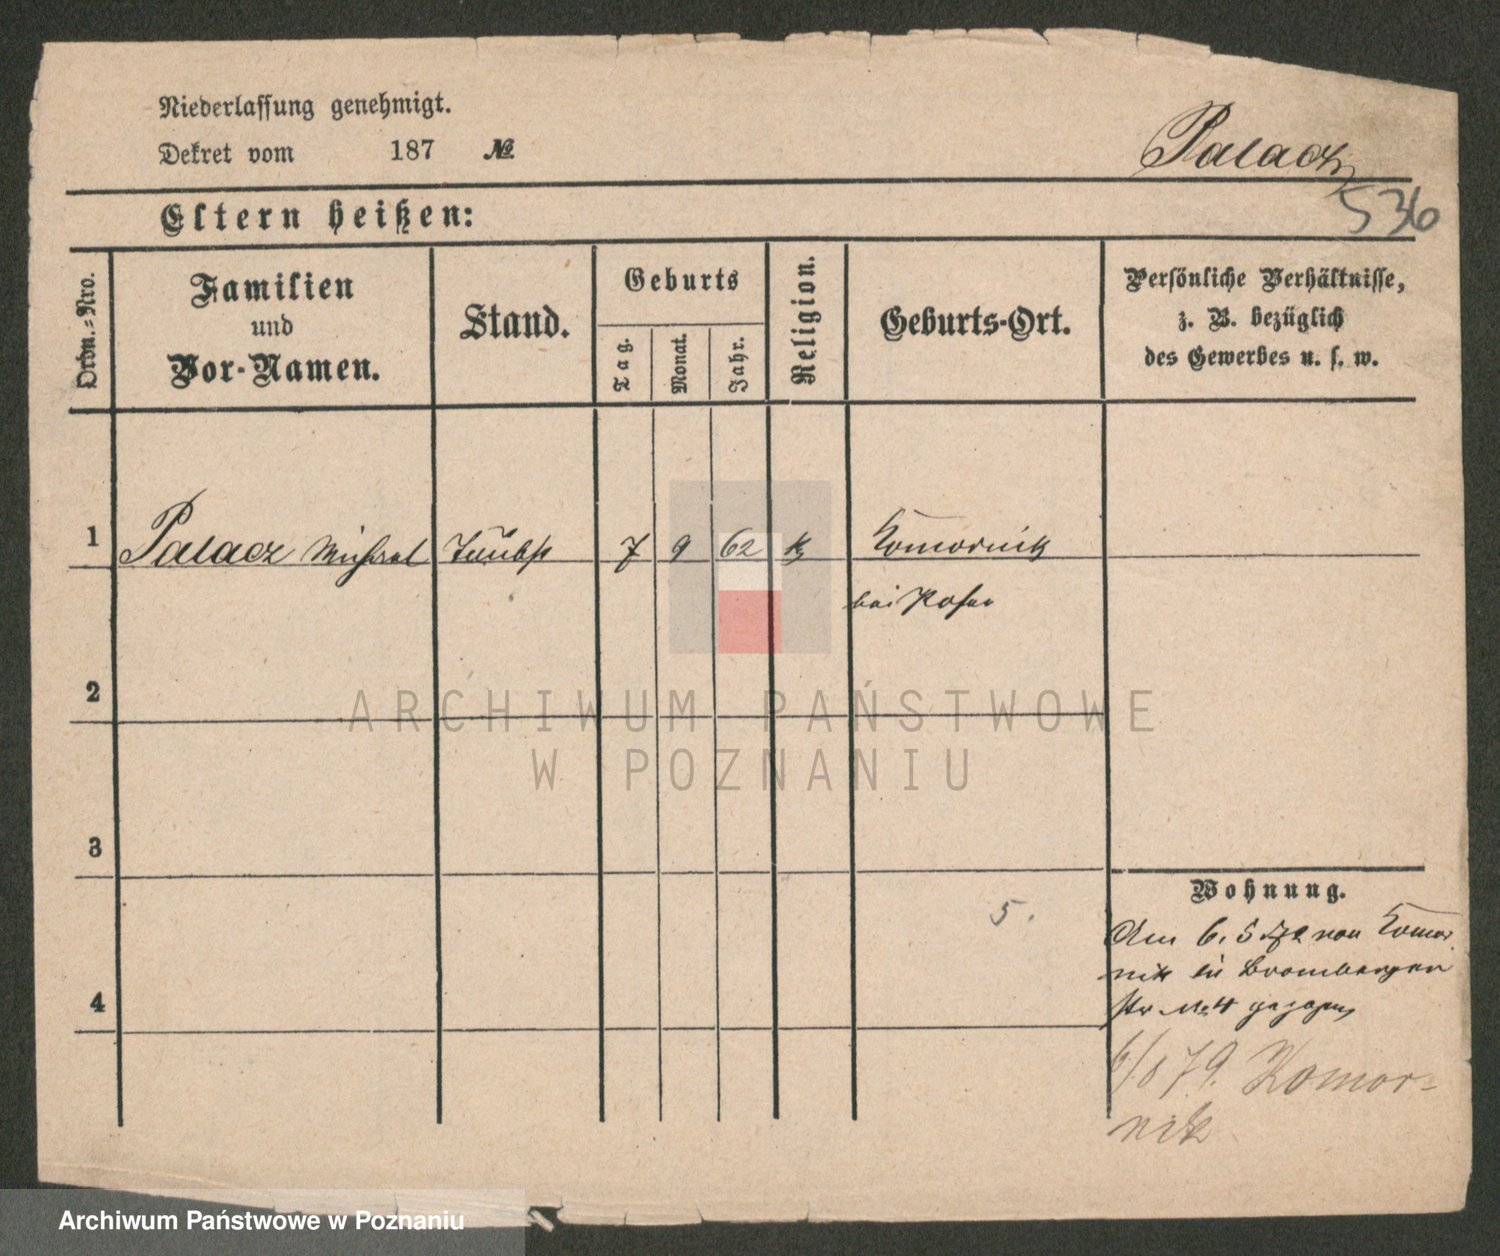 Niederlassung genehmigt.
Dekret vom 187 №
Palacz
536
Eltern heißen:
Ordn.-Nro.
Familien
und
Vor-Namen.
Stand.
Geburts
Tag.
Monat.
Jahr.
Religion.
Geburts-Ort.
Persönliche Verhältnisse,
z. B. bezüglich
des Gewerbes u. s. w.
1 Palacz Michael 7 9 62 k Komornik
bei Posen
2
ARCHIWUM PAŃSTWOWE
W POZNANIU
3
Wohnung.
5.
Am 6. 5 79 von Komor
nik in Bromberger
str No 4 gezogen
4
6/5 79. Komor-
nik
Archiwum Państwowe w Poznaniu